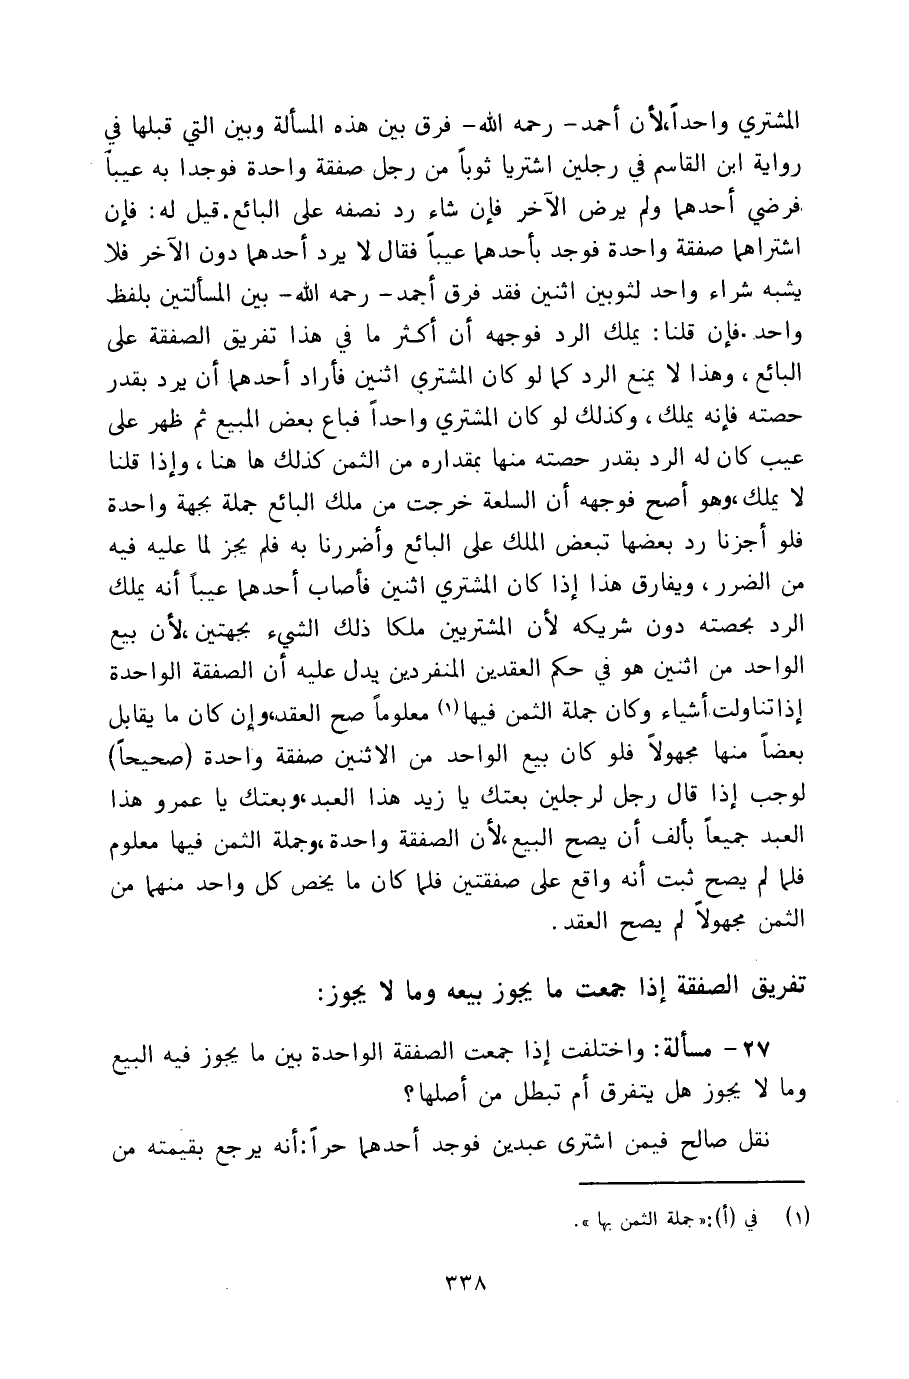 المشتري واحداً،لأن أحمد- رحمه الله- فرق بين هذه المسألة وبين التي قبلها في
رواية ابن القاسم في رجلين اشتريا ثوباً من رجل صفقة واحدة فوجدا به عيباً
فرضي أحدهما ولم يرض الآخر فإن شاء رد نصفه على البائع.قيل له: فإن
اشتراهما صفقة واحدة فوجد بأحدهما عيباً فقال لا يرد أحدهما دون الآخر فلا
يشبه شراء واحد لثوبين اثنين فقد فرق أحمد- رحمه الله- بين المسألتين بلفظ
واحد.فإن قلنا: يملك الرد فوجهه أن أكثر ما في هذا تفريق الصفقة على
البائع، وهذا لا يمنع الرد كما لو كان المشتري اثنين فأراد أحدهما أن يرد بقدر
حصته فإنه يملك، وكذلك لو كان المشتري واحداً فباع بعض المبيع ثم ظهر على
عيب كان له الرد بقدر حصته منها بمقداره من الثمن كذلك ها هنا، وإذا قلنا
لا يملك،وهو أصح فوجهه أن السلعة خرجت من ملك البائع جملة بجهة واحدة
فلو أجزنا رد بعضها تبعض الملك على البائع وأضررنا به فلم يجز لما عليه فيه
من الضرر، ويفارق هذا إذا كان المشتري اثنين فأصاب أحدهما عيباً أنه يملك
الرد بحصته دون شريكه لأن المشتريين ملكا ذلك الشيء بجهتين،لأن بيع
الواحد من اثنين هو في حكم العقدين المنفردين يدل عليه أن الصفقة الواحدة
إذا تناولت أشياء وكان جملة الثمن فيها(١) معلوماً صح العقد،وإن كان ما يقابل
بعضاً منها مجهولاً فلو كان بيع الواحد من الاثنين صفقة واحدة (صحيحاً)
لوجب إذا قال رجل لرجلين بعتك يا زيد هذا العبد،وبعتك يا عمرو هذا
العبد جميعاً بألف أن يصح البيع،لأن الصفقة واحدة،وجملة الثمن فيها معلوم
فلما لم يصح ثبت أنه واقع على صفقتين فلما كان ما يخص كل واحد منهما من
الثمن مجهولاً لم يصح العقد.
تفريق الصفقة إذا جمعت ما يجوز بيعه وما لا يجوز:
٢٧- مسألة: واختلفت إذا جمعت الصفقة الواحدة بين ما يجوز فيه البيع
وما لا يجوز هل يتفرق أم تبطل من أصلها؟
نقل صالح فيمن اشترى عبدين فوجد أحدهما حراً:أنه يرجع بقيمته من
(١) في (أ):«جملة الثمن بها».
٣٣٨